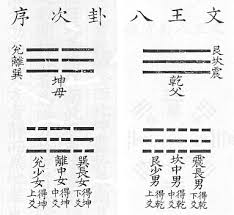 文王八卦次序
震坎艮
乾父
震長男 得乾下爻
坎中男 得乾中爻
艮少男 得乾上爻
巽離兌
坤母
巽長女 得坤下爻
離中女 得坤中爻
兌少女 得坤上爻